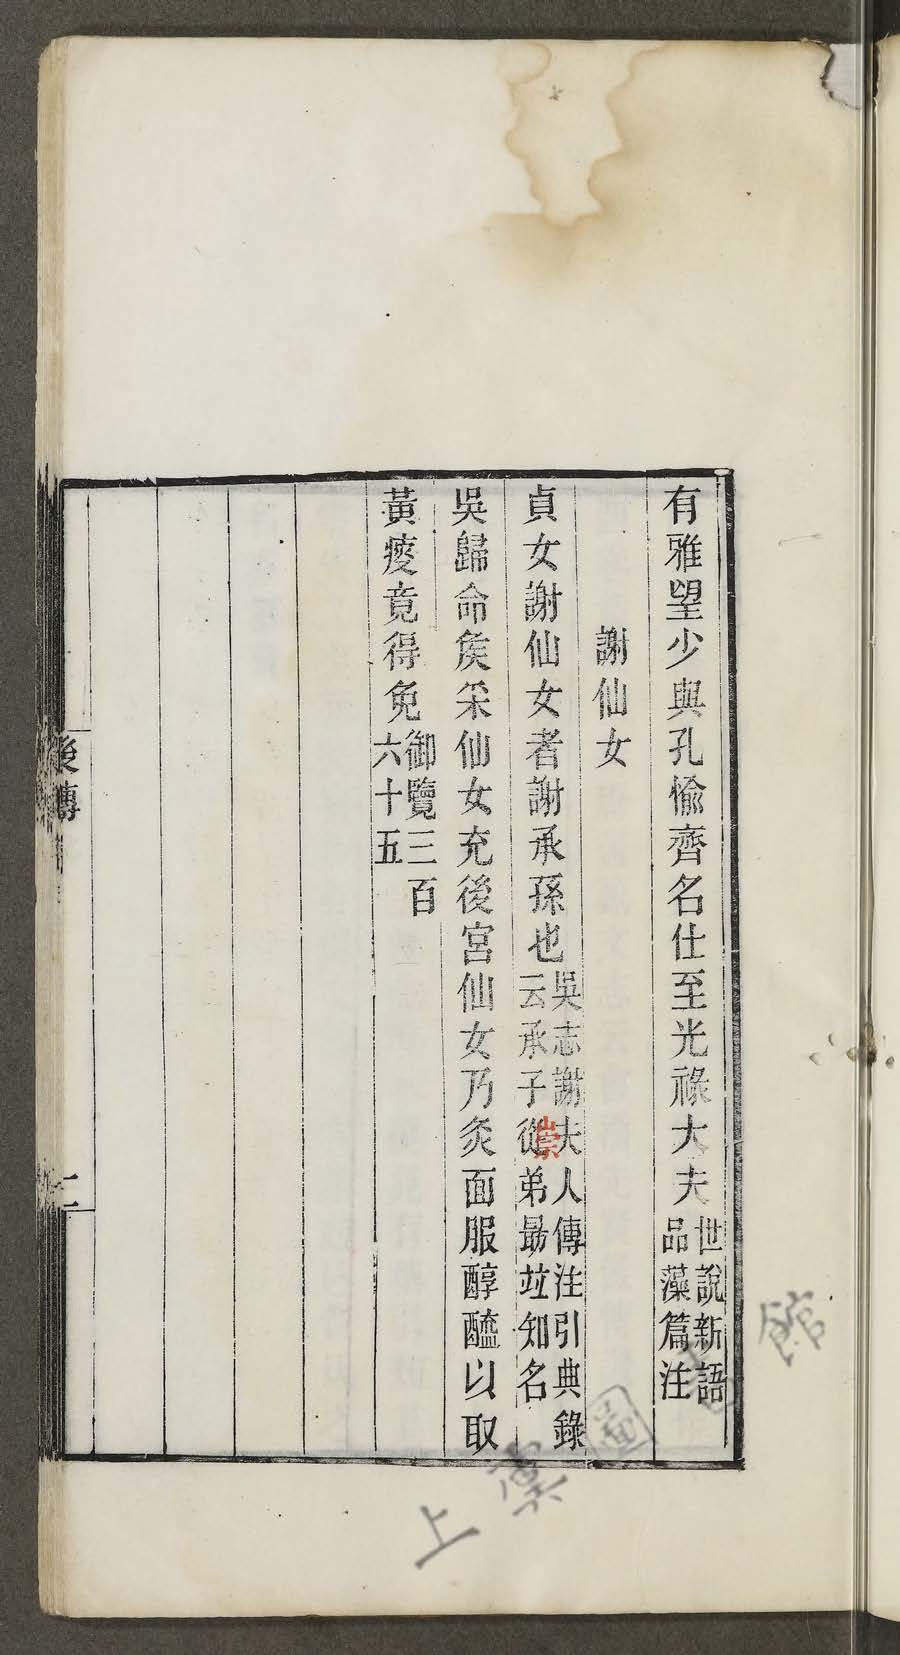 有雅望少與孔愉齊名仕至光祿大夫世說新語
品藻篇注
謝仙女
貞女謝仙女者謝承孫也吳志謝夫人傳注引典錄
云承子崇從弟勗竝知名
吳歸命矦采仙女充後宮仙女乃灸面服醇醯以取
黃痿竟得免御覽三百
六十五
後傳
二
上虞圖書館